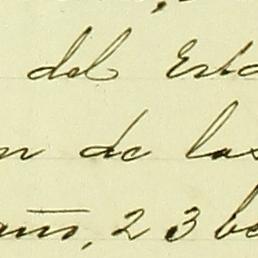 del Esta
n de las
año, 23 be